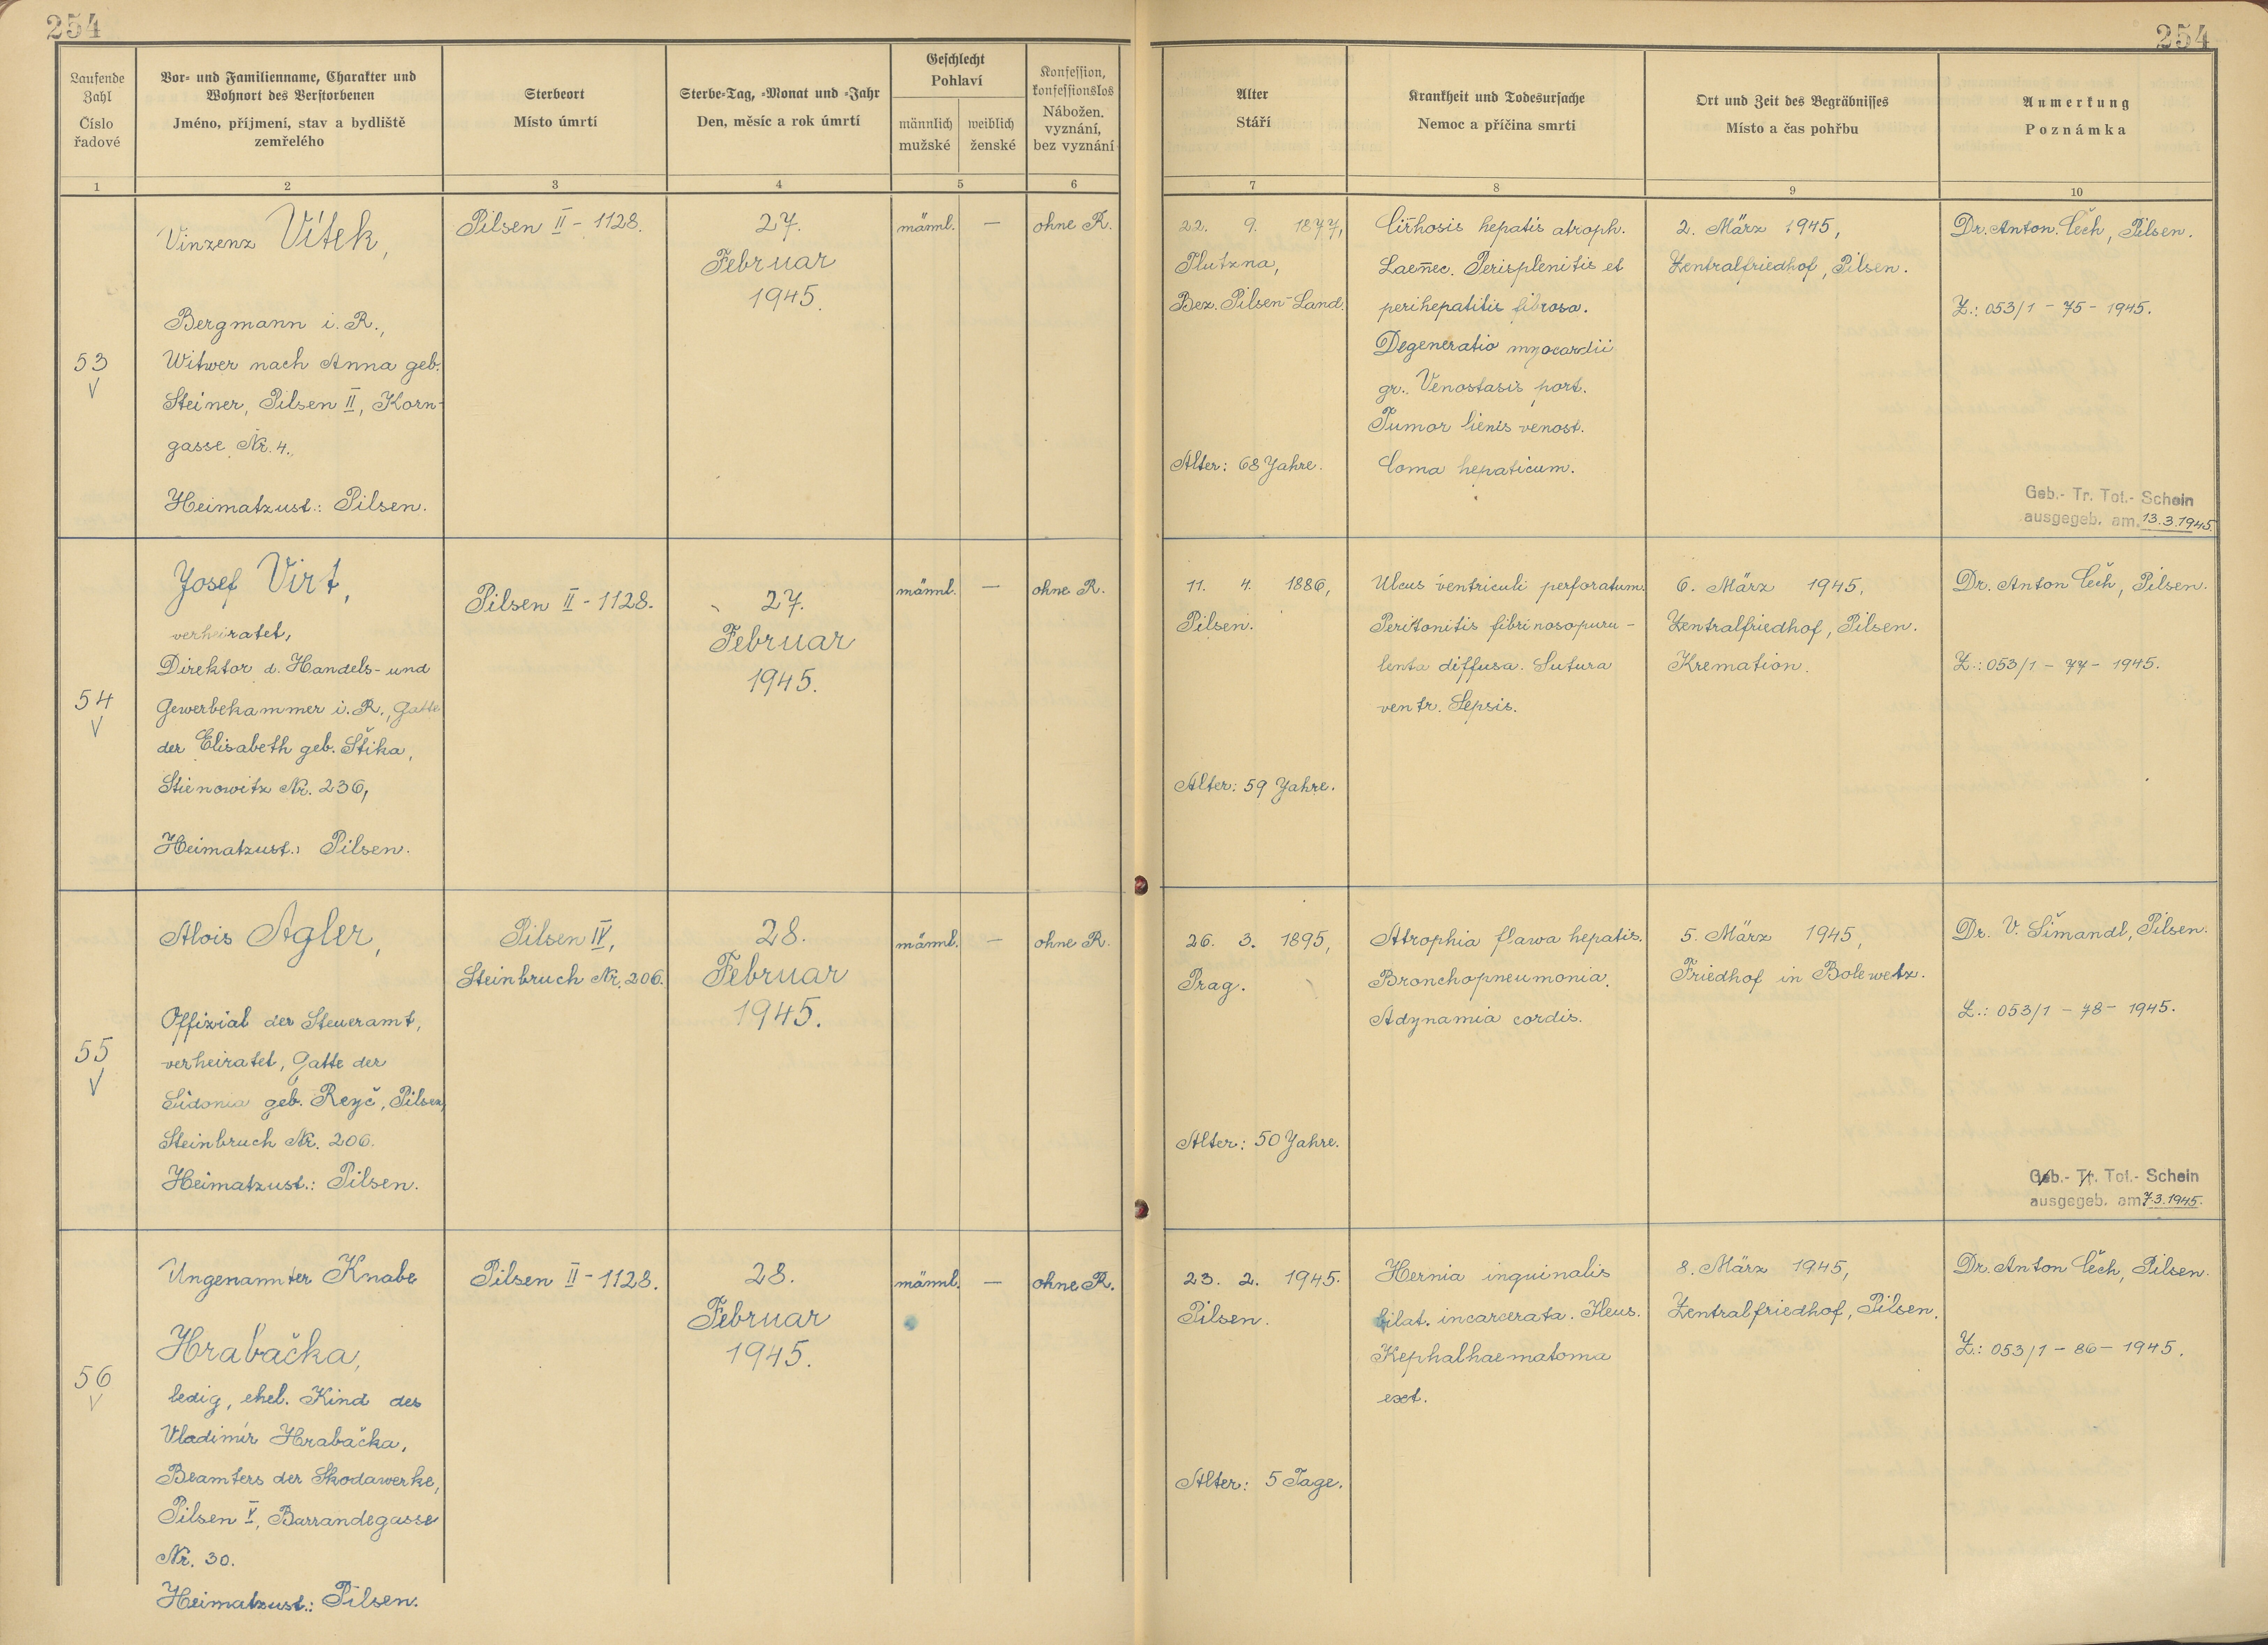 254
254
Laufende Zahl
Číslo řadové
Vor- und Familienname, Charakter und
Wohnort des Verstorbenen
Jméno, příjmení, stav a bydliště
zemřelého
Sterbeort
Místo úmrtí
Sterbe-Tag, -Monat und -Jahr
Den, měsíc a rok úmrtí
Geschlecht
Pohlaví
männlich
mužské
weiblich
ženské
Konfession,
konfessionslos
Nábožen.
vyznání,
bez vyznání
Alter
Stáří
Krankheit und Todesursache
Nemoc a příčina smrti
Ort und Zeit des Begräbnisses
Místo a čas pohřbu
Anmerkung
Poznámka
1 2 3 4 5 6 7 8 9 10
53
V
Vinzenz Vítek,
Bergmann i. R.,
Witwer nach Anna geb.
Steiner, Pilsen II, Korn-
gasse Nr. 4.
Heimatzust.: Pilsen.
Pilsen II - 1128.
27.
Februar
1945.
männl.
—
ohne R.
22. 9. 1877,
Plutzna,
Bez. Pilsen-Land.
Alter: 68 Jahre.
Cirhosis hepatis atroph.
Laennec. Perisplenitis et
perihepatitis fibrosa.
Degeneratio myocardii
gr. Venostasis port.
Tumor lienis venost.
Coma hepaticum.
2. März 1945,
Zentralfriedhof, Pilsen.
Dr. Anton Čech, Pilsen.
Z.: 053/1 - 75 - 1945.
Geb.- Tr. Tot.- Schein
ausgegeb. am 13.3.1945.
54
V
Josef Virt,
verheiratet,
Direktor d. Handels- und
Gewerbekammer i. R., Gatte
der Elisabeth geb. Štika,
Stienowitz Nr. 236,
Heimatzust.: Pilsen.
Pilsen II - 1128.
27.
Februar
1945.
männl.
—
ohne R.
11. 4. 1886,
Pilsen.
Alter: 59 Jahre.
Ulcus ventriculi perforatum.
Peritonitis fibrinosopuru-
lenta diffusa. Sutura
ventr. Sepsis.
6. März 1945,
Zentralfriedhof, Pilsen.
Kremation.
Dr. Anton Čech, Pilsen.
Z.: 053/1 - 77 - 1945.
55
V
Alois Agler,
Offizial der Steueramt,
verheiratet, Gatte der
Sidonia geb. Reyč, Pilsen,
Steinbruch Nr. 206.
Heimatzust.: Pilsen.
Pilsen IV,
Steinbruch Nr. 206.
28.
Februar
1945.
männl.
—
ohne R.
26. 3. 1895,
Prag.
Alter: 50 Jahre.
Atrophia flawa hepatis.
Bronchopneumonia.
Adynamia cordis.
5. März 1945,
Friedhof in Bolewetz.
Dr. V. Šimandl, Pilsen.
Z.: 053/1 - 78 - 1945.
Geb.- Tr. Tot.- Schein
ausgegeb. am 7.3.1945.
56
V
Ungenannter Knabe
Hrabačka,
ledig, ehel. Kind des
Vladimír Hrabačka,
Beamters der Skodawerke,
Pilsen V, Barrandegasse
Nr. 30.
Heimatzust.: Pilsen.
Pilsen II - 1128.
28.
Februar
1945.
männl.
—
ohne R.
23. 2. 1945.
Pilsen.
Alter: 5 Tage.
Hernia inguinalis
bilat. incarcerata. Ileus.
Kephalhaematoma
ext.
8. März 1945,
Zentralfriedhof, Pilsen.
Dr. Anton Čech, Pilsen.
Z.: 053/1 - 86 - 1945.